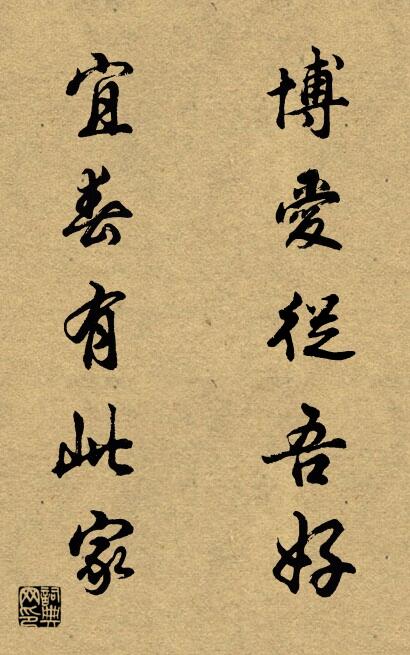 博愛從吾好
宜春有此家
詞典網印